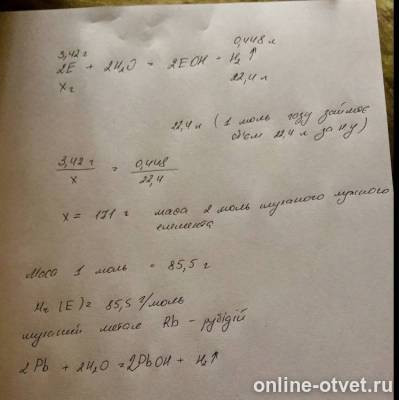 3,42 г 0,448 л
2E + 2H₂O = 2EOH + H₂↑
x г 22,4 л
22,4 л (1 моль газу займає
об'єм 22,4 л за н.у)
3,42 г / x = 0,448 / 22,4
x = 171 г маса 2 моль шуканого лужного
елемента
Маса 1 моль = 85,5 г
Mr (E) = 85,5 г/моль
шуканий метал Rb - рубідій
2Pb + 2H₂O = 2PbOH + H₂↑
online-otvet.ru